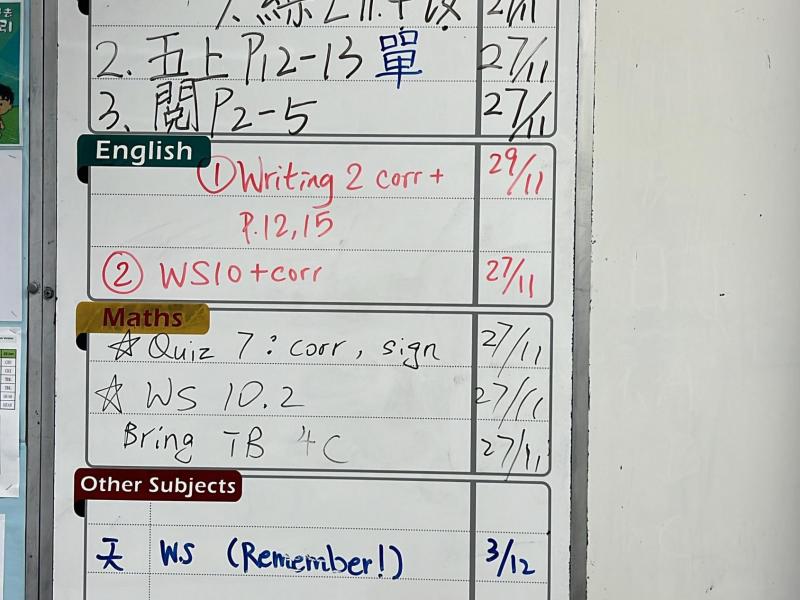 2. 五上 P12-13 單 27/11
3. 閱 P2-5 27/11
English
① Writing 2 corr + 29/11
P.12,15
② WS10 + corr 27/11
Maths
☆ Quiz 7 : corr, sign 27/11
☆ WS 10.2 27/11
Bring TB 4C 27/11
Other Subjects
天 W.S (Remember!) 3/12